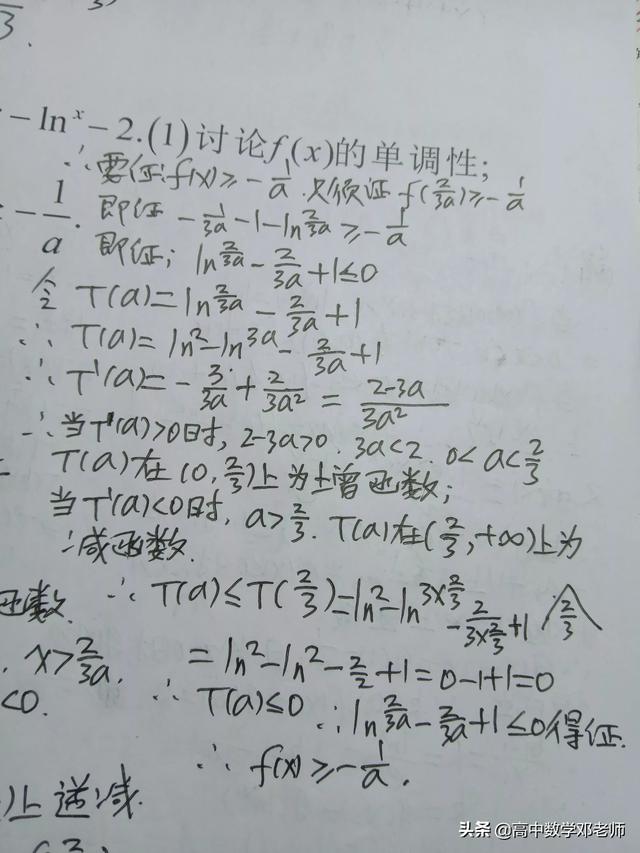 3.
-lnˣ-2.(1)讨论f(x)的单调性;
∵要证:f(x)≥-1/a.只须证f(2/3a)≥-1/a
-1/a.
即证 -1/3a-1-ln^(2/3a)≥-1/a
即证; ln^(2/3a)-2/3a+1≤0
令 T(a)=ln^(2/3a)-2/3a+1
∴ T(a)=ln²-ln^(3a)-2/3a+1
∴ T'(a)=-3/3a+2/3a²=(2-3a)/3a²
∴当T'(a)>0时, 2-3a>0. 3a<2. 0<a<2/3
T(a)在(0,2/3)上为增函数;
当T'(a)<0时, a>2/3. T(a)在(2/3,+∞)上为
减函数.
函数.
∴ T(a)≤T(2/3)=ln²-ln^(3×2/3)-2/(3×2/3)+1
2/3
, x>2/3a,
=ln²-ln²-2/2+1=0-1+1=0
<0.
∴ T(a)≤0 ∴ln^(2/3a)-2/3a+1≤0得证.
∴ f(x)≥-1/a.
)上递减.
头条@高中数学邓老师